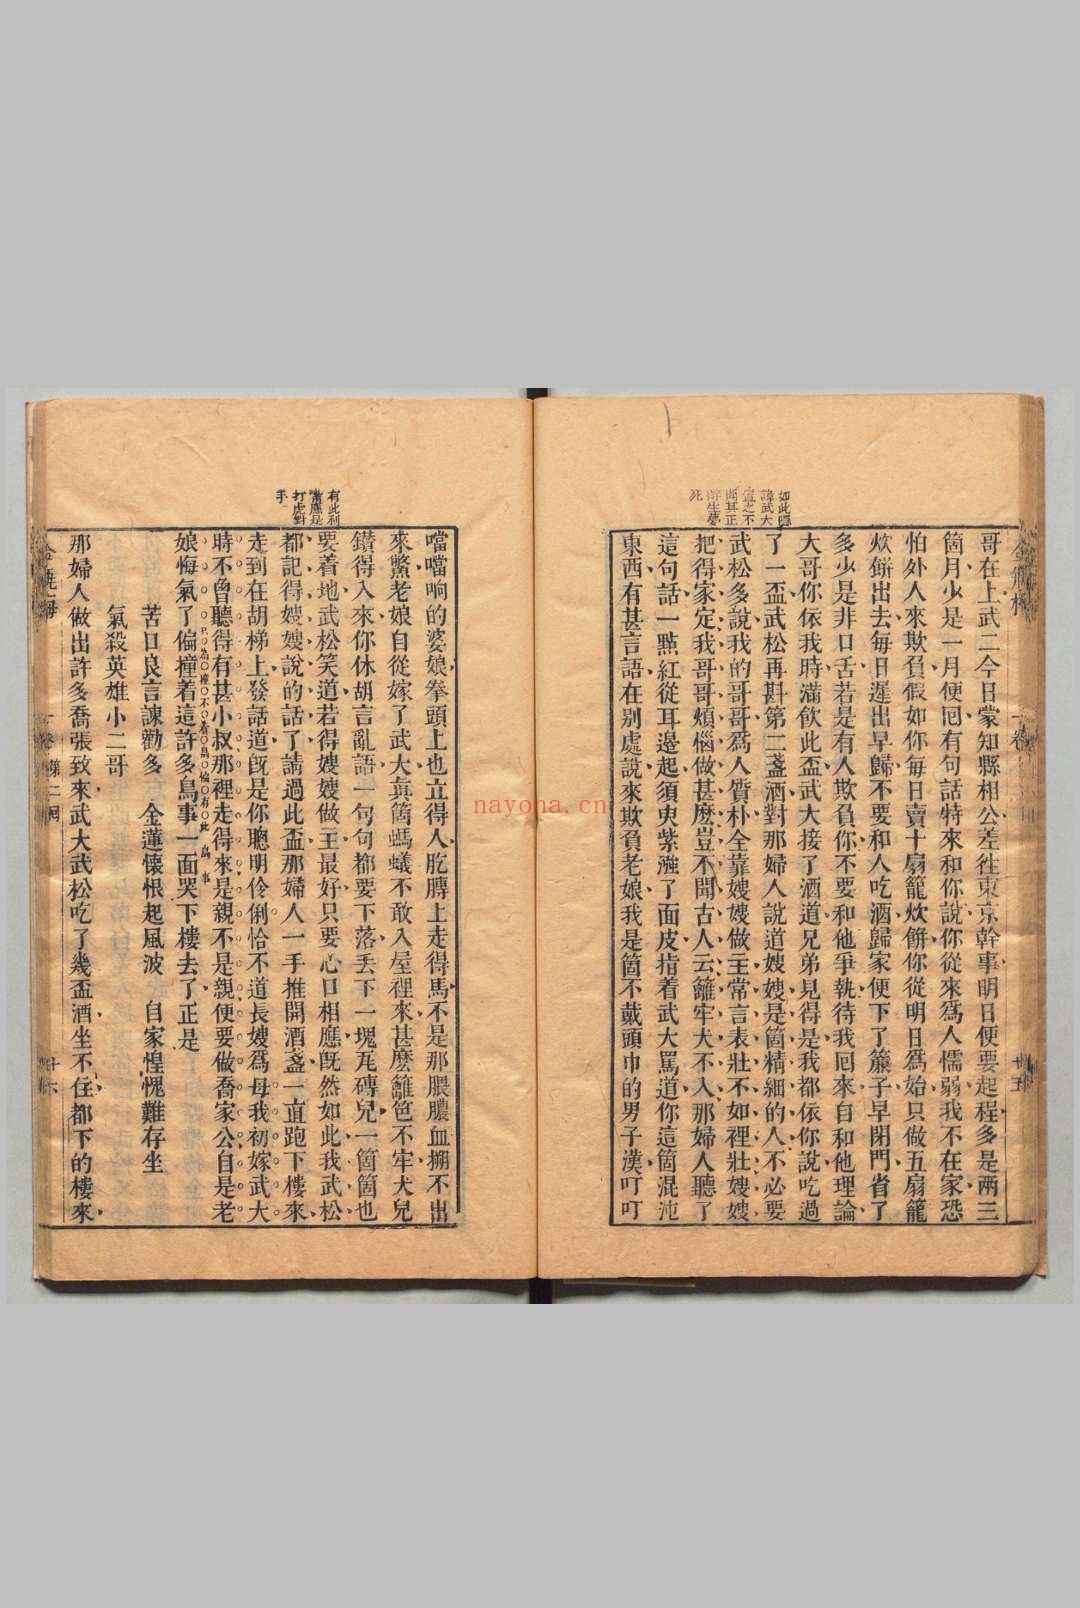 如此隱
諱武大
死
哥在上武二今日蒙知縣相公差徃東京幹事明日便要起程多是兩三
箇月少是一月便囘有句話特來和你說你從來爲人懦弱我不在家恐
怕外人來欺負假如你每日賣十扇籠炊餅你從明日爲始只做五扇籠
炊餅出去每日遲出早歸不要和人吃酒歸家便下了簾子早閉門省了
多少是非口舌若是有人欺負你不要和他爭執待我囘來自和他理論
大哥你依我時滿飲此盃武大接了酒道兄弟見得是我都依你說吃過
了一盃武松再斟第二盞酒對那婦人說道嫂嫂是箇精細的人不必要
武松多說我的哥哥爲人質朴全靠嫂嫂做主常言表壯不如裡壯嫂嫂
把得家定我哥哥煩惱做甚麽豈不聞古人云籬牢犬不入那婦人聽了
這句話一點紅從耳邊起須臾紫漒了面皮指着武大罵道你這箇混沌
東西有甚言語在别處說來欺負老娘我是箇不戴頭巾的男子漢叮叮
卷
廿五
有此利
嘴應是
打虎對
手
噹噹响的婆娘拳頭上也立得人肐膊上走得馬不是那腲膿血搠不出
來鱉老娘自從嫁了武大眞箇螞蟻不敢入屋裡來甚麽籬笆不牢犬兒
鑽得入來你休胡言亂語一句句都要下落丢下一塊瓦磚兒一箇箇也
要着地武松笑道若得嫂嫂做主最好只要心口相應旣然如此我武松
都記得嫂嫂說的話了請過此盃那婦人一手推開酒盞一直跑下樓來
走到在胡梯上發話道旣是你聰明伶俐恰不道長嫂爲母我初嫁武大
時不曾聽得有甚小叔那裡走得來是親不是親便要做喬家公自是老
娘悔氣了偏撞着這許多鳥事一面哭下樓去了正是
苦口良言諫勸多　金蓮懷恨起風波　自家惶愧難存坐
氣殺英雄小二哥
那婦人做出許多喬張致來武大武松吃了幾盃酒坐不住都下的樓來
卷　第二囘
廿六
nayona.cn